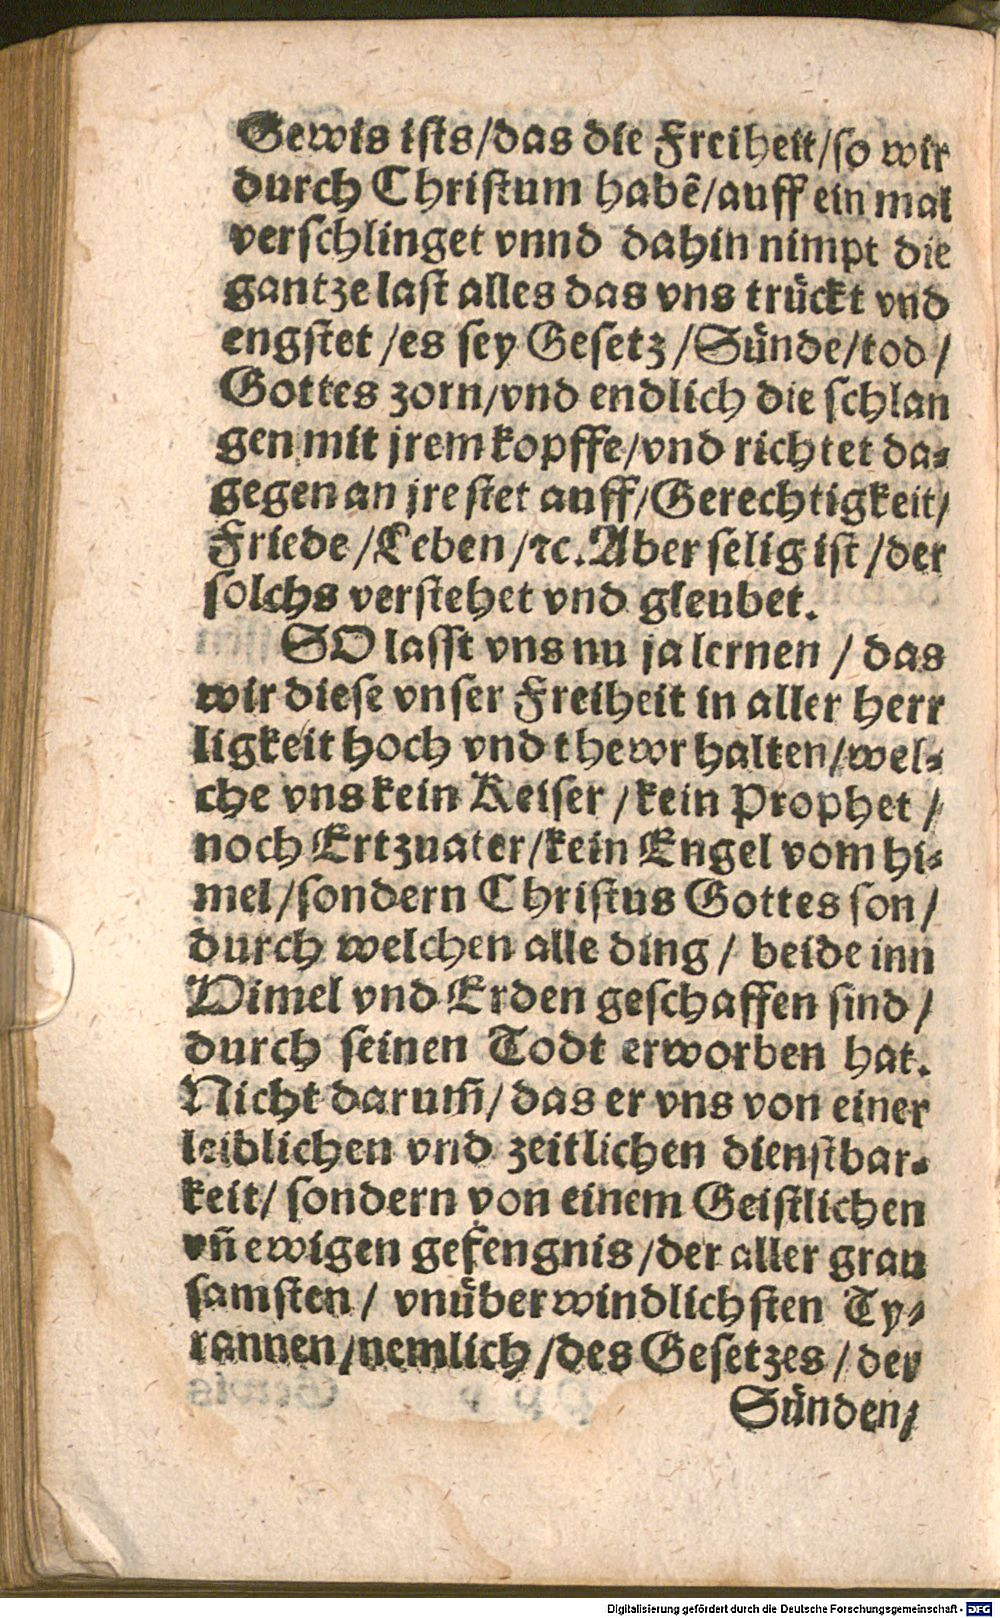 Gewis ists/das die Freiheit/so wir
durch Christum habẽ/auff ein mal
verschlinget vnnd dahin nimpt die
gantze last alles das vns truͤckt vnd
engstet/es sey Gesetz/Suͤnde/tod/
Gottes zorn/vnd endlich die schlan
gen mit jrem kopffe/vnd richtet da-
gegen an jre stet auff/Gerechtigkeit/
Friede/Leben/ꝛc. Aber selig ist/der
solchs verstehet vnd gleubet.
SO lasst vns nu ja lernen/das
wir diese vnser Freiheit in aller herr
ligkeit hoch vnd thewr halten/wel-
che vns kein Keiser/kein Prophet/
noch Ertzuater/kein Engel vom hi-
mel/sondern Christus Gottes son/
durch welchen alle ding/ beide inn
Himel vnd Erden geschaffen sind/
durch seinen Todt erworben hat.
Nicht darum̃/das er vns von einer
leiblichen vnd zeitlichen dienstbar-
keit/sondern von einem Geistlichen
vñ ewigen gefengnis/der aller grau
samsten/ vnuͤberwindlichsten Ty-
rannen/nemlich/des Gesetzes/der
Suͤnden/
Digitalisierung gefördert durch die Deutsche Forschungsgemeinschaft - DFG